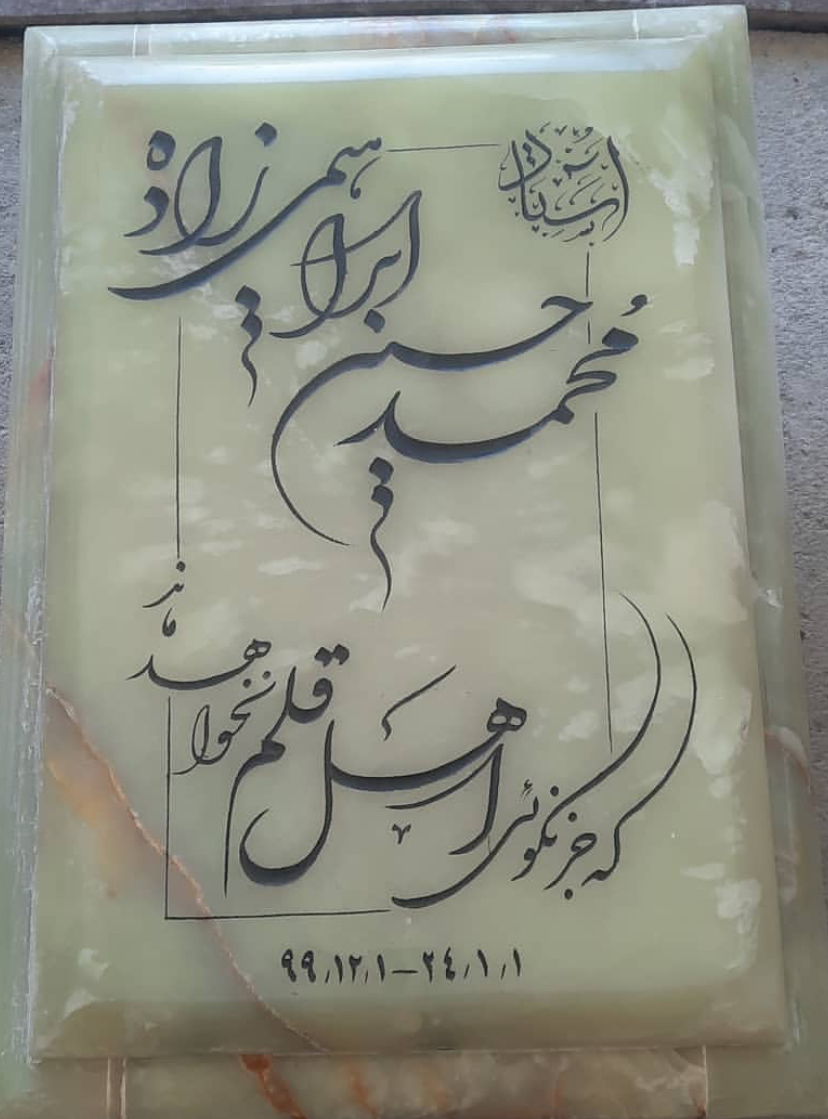 محمد حسن
ابراهیمی زاده
که جز نکوئی اهل قلم نخواهد ماند
۲۴٫۱٫۱ – ۹۹٫۱۲٫۱